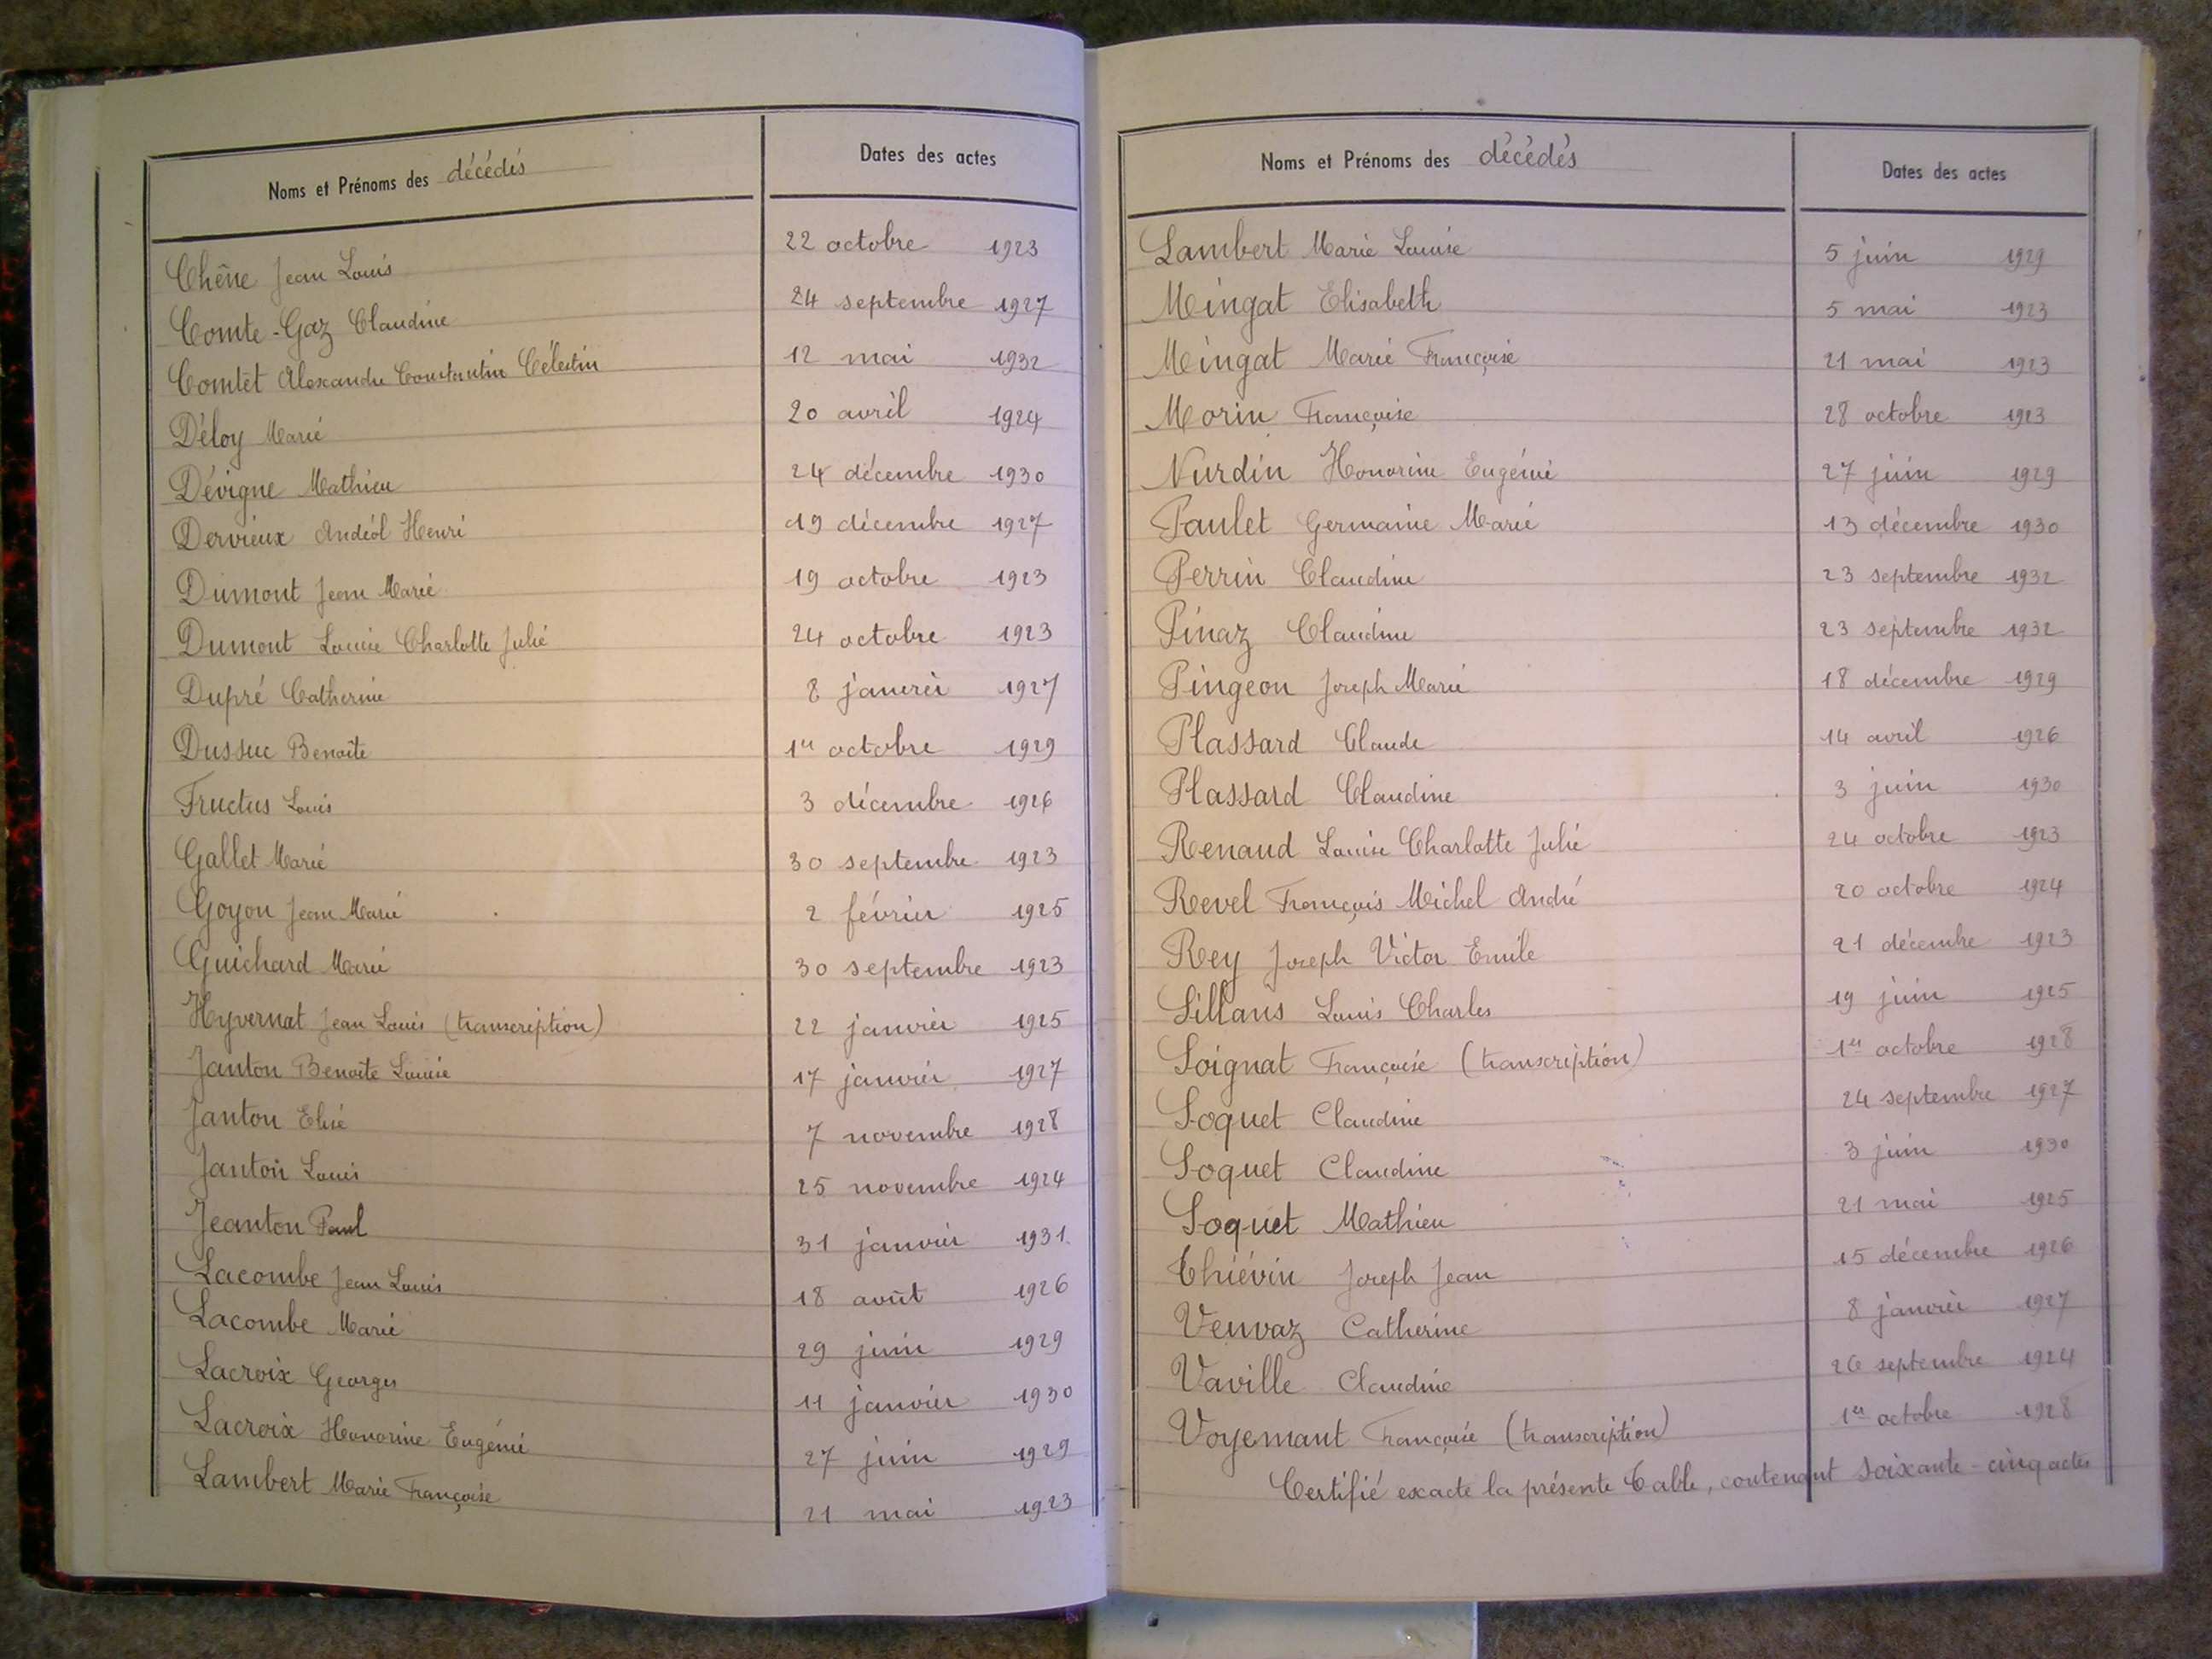 Noms et Prénoms des décédés Dates des actes
Chêne Jean Louis 22 octobre 1923
Comte-Gaz Claudine 24 septembre 1927
Comtet Alexandre Constantin Célestin 12 mai 1932
Déloy Marie 20 avril 1924
Dévigne Mathieu 24 décembre 1930
Dervieux Andéol Henri 19 décembre 1927
Dumont Jean Marie 19 octobre 1923
Dumont Louise Charlotte Julie 24 octobre 1923
Dupré Catherine 8 janvier 1927
Dussuc Benoîte 1er octobre 1929
Fructus Louis 3 décembre 1926
Gallet Marie 30 septembre 1923
Goyon Jean Marie 2 février 1925
Guichard Marie 30 septembre 1923
Hyvernat Jean Louis (transcription) 22 janvier 1925
Janton Benoîte Louise 17 janvier 1927
Janton Elie 7 novembre 1928
Janton Louis 25 novembre 1924
Jeanton Paul 31 janvier 1931
Lacombe Jean Louis 18 août 1926
Lacombe Marie 29 juin 1929
Lacroix Georges 11 janvier 1930
Lacroix Honorine Eugénie 27 juin 1929
Lambert Marie Françoise 21 mai 1923
Noms et Prénoms des décédés Dates des actes
Lambert Marie Louise 5 juin 1929
Mingat Elisabeth 5 mai 1923
Mingat Marie Françoise 21 mai 1923
Morin Françoise 28 octobre 1923
Nurdin Honorine Eugénie 27 juin 1929
Paulet Germaine Marie 13 décembre 1930
Perrin Claudine 23 septembre 1932
Pinaz Claudine 23 septembre 1932
Pingeon Joseph Marie 18 décembre 1929
Plassard Claude 14 avril 1926
Plassard Claudine 3 juin 1930
Renaud Louise Charlotte Julie 24 octobre 1923
Revel François Michel André 20 octobre 1924
Rey Joseph Victor Emile 21 décembre 1923
Sillans Louis Charles 19 juin 1925
Soignat Françoise (transcription) 1er octobre 1928
Soquet Claudine 24 septembre 1927
Soquet Claudine 3 juin 1930
Soquet Mathieu 21 mai 1925
Thiévin Joseph Jean 15 décembre 1926
Venvaz Catherine 8 janvier 1927
Vaville Claudine 26 septembre 1924
Voyemant Françoise (transcription) 1er octobre 1928
Certifié exacte la présente Table, contenant soixante-cinq actes